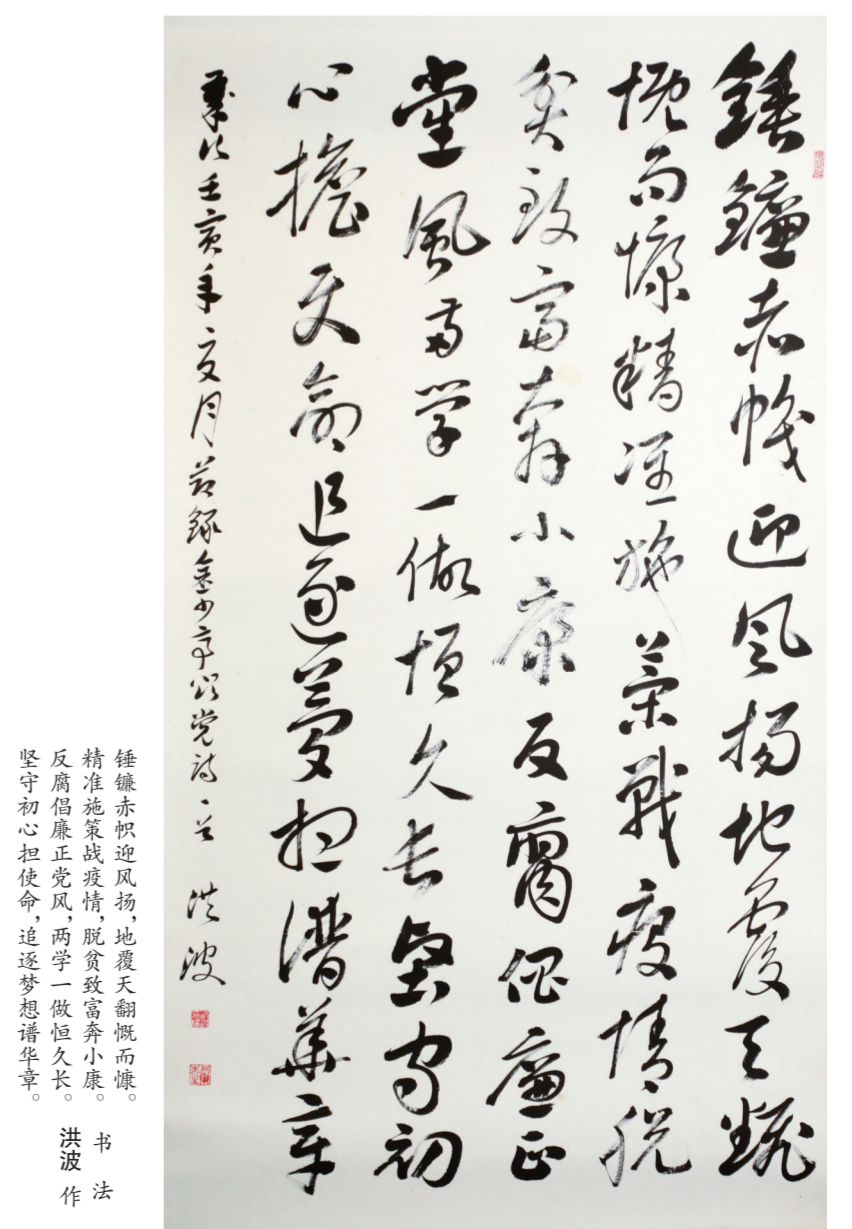 錘鐮赤幟迎风揚地覆天翻
慨而慷精準施策戰疫情脱
貧致富奔小康反腐倡廉正
黨風两学一做恒久長堅守初
心擔使命追逐夢想譜華章
歲次壬寅年夏月錄金少亭頌党詩一首 洪波
锤镰赤帜迎风扬，地覆天翻慨而慷。
精准施策战疫情，脱贫致富奔小康。
反腐倡廉正党风，两学一做恒久长。
坚守初心担使命，追逐梦想谱华章。
书 法
洪波 作